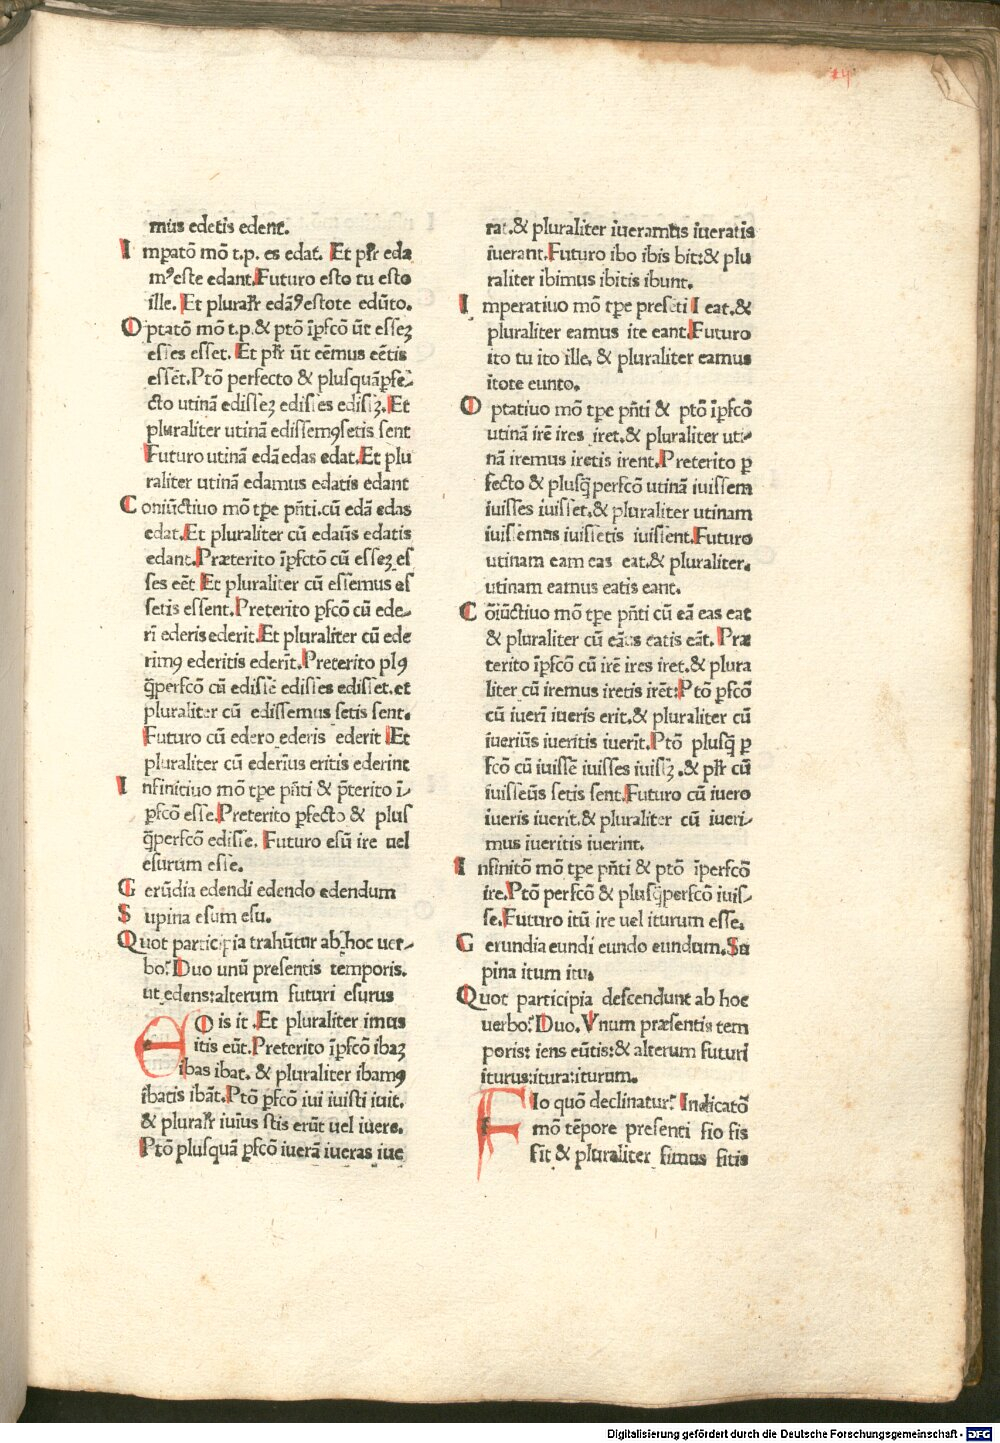 24
mus edetis edent.
Impatō mō t.p. es edat. Et plr̄ eda
mꝰ este edant. Futuro esto tu esto
ille. Et plurar̄ edāꝰ estote edūto.
Optatō mō t.p. & ptō īpfcō ūt esseꝫ
esses esset. Et plr̄ ūt eēmus eētis
essēt. Ptō perfecto & plusquāpfe-
cto utinā edisseꝫ edisses edisꝫ. Et
pluraliter utinā edissemꝰ setis sent
Futuro utinā edā edas edat. Et plu
raliter utinā edamus edatis edant
Coniūctiuo mō tꝑe pn̄ti. cū edā edas
edat. Et pluraliter cū edaūs edatis
edant. Præterito īpfctō cū esseꝫ es
ses eēt Et pluraliter cū essemus es
setis essent. Preterito ꝑfcō cū ede-
rī ederis ederit. Et pluraliter cū ede
rimꝰ ederitis ederīt. Preterito plꝰ
q̄perfcō cū edissē edisses edisset. et
pluraliter cū edissemus setis sent.
Futuro cū edero ederis ederit Et
pluraliter cū ederīus eritis ederint
Infinitiuo mō tꝑe pn̄ti & p̄terito ī-
ꝑfcō esse. Preterito ꝑfecto & plus
q̄perfcō edisse. Futuro esū ire uel
esurum esse.
Gerūdia edendi edendo edendum
Supina esum esu.
Quot participia trahūtur ab hoc uer-
bo? Duo unū presentis temporis.
ut edens: alterum futuri esurus
EO is it. Et pluraliter imus
itis eūt. Preterito īpfcō ibaꝫ
ibas ibat. & pluraliter ibamꝰ
ibatis ibāt. Ptō ꝑfcō iui iuisti iuit.
& plurar̄ iuius stis erūt uel iuere.
Ptō plusquā ꝑfcō iuerā iueras iue
rat. & pluraliter iueramus iueratis
iuerant. Futuro ibo ibis bit: & plu
raliter ibimus ibitis ibunt.
Imperatiuo mō tꝑe preseti I eat. &
pluraliter eamus ite eant. Futuro
ito tu ito ille, & pluraliter eamus
itote eunto.
Optatiuo mō tꝑe pn̄ti & ptō īpfcō
utinā irē ires iret. & pluraliter uti-
nā iremus iretis irent. Preterito ꝑ
fecto & plusq̄perfcō utinā iuissem
iuisses iuisset. & pluraliter utinam
iuissemus iuissetis iuissent. Futuro
utinam eam eas eat. & pluraliter.
utinam eamus eatis eant.
Cōiūctiuo mō tꝑe pn̄ti cū eā eas eat
& pluraliter cū eāus eatis eāt. Præ
terito īpfcō cū irē ires iret. & plura
liter cū iremus iretis irēt: Ptō ꝑfcō
cū iuerī iueris erit. & pluraliter cū
iueriūs iueritis iuerīt. Ptō plusq̄ ꝑ
fcō cū iuissē iuisses iuisꝫ. & plr̄ cū
iuisseūs setis sent. Futuro cū iuero
iueris iuerit. & pluraliter cū iueri-
mus iueritis iuerint.
Infinitō mō tꝑe pn̄ti & ptō īperfcō
ire. Ptō perfcō & plusq̄perfcō iuis-
se. Futuro itū ire uel iturum esse.
Gerundia eundi eundo eundum. Su
pina itum itu.
Quot participia descendunt ab hoc
uerbo? Duo. Vnum præsentis tem
poris: iens eūtis: & alterum futuri
iturus: itura: iturum.
FIo quō declinatur? Indicatō
mō tēpore presenti fio fis
fit & pluraliter fimus fitis
Digitalisierung gefördert durch die Deutsche Forschungsgemeinschaft - DFG